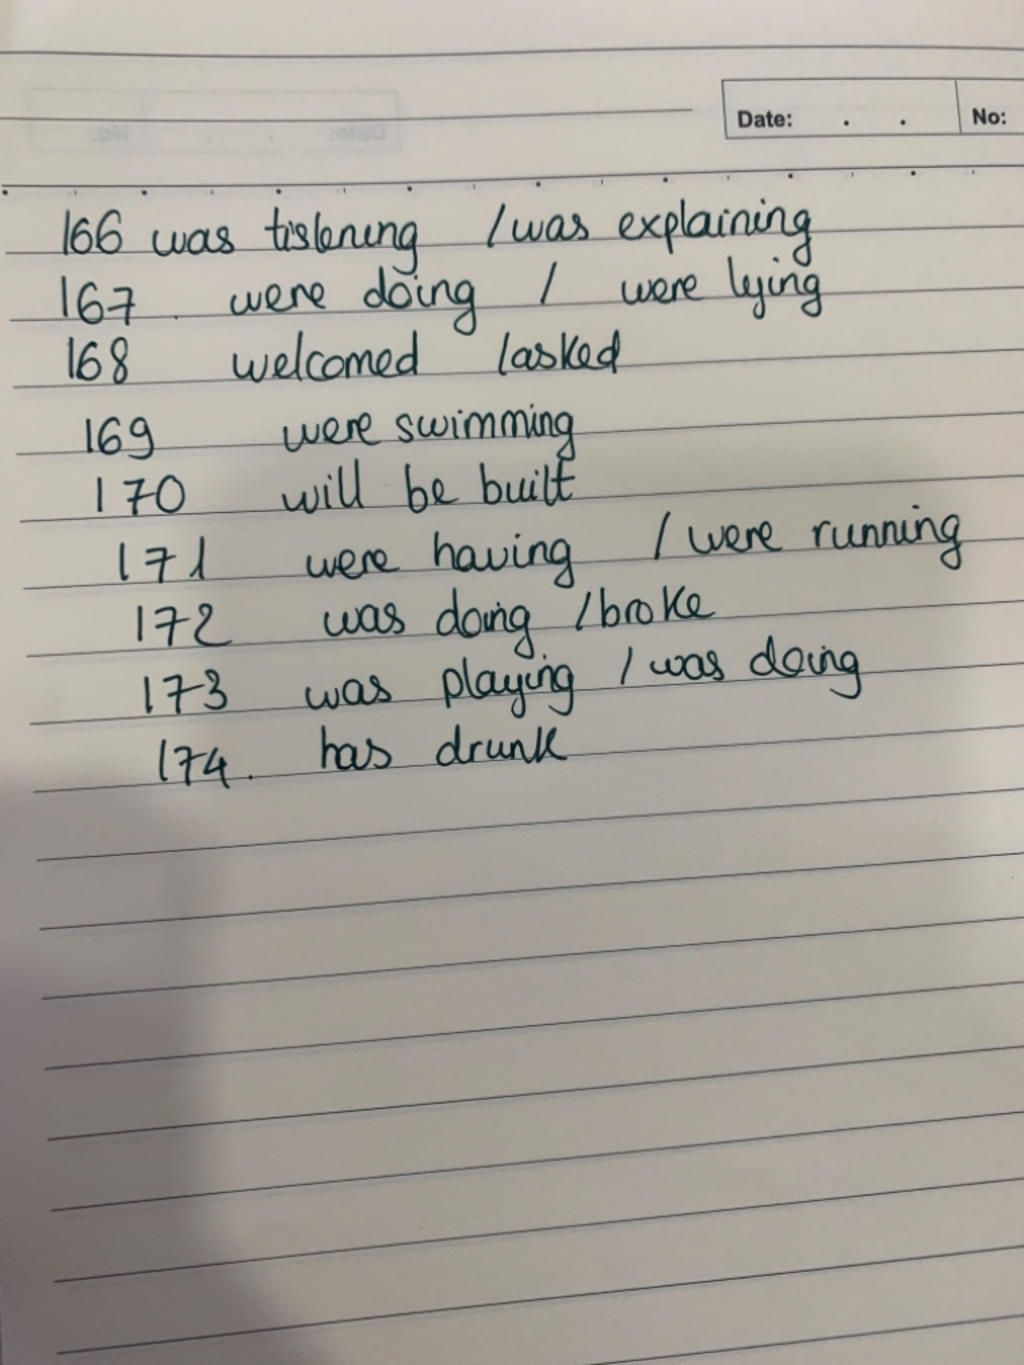 Date: . . No:
166 was tislening / was explaining
167. were doing / were lying
168 welcomed / asked
169 were swimming
170 will be built
171 were having / were running
172 was doing / broke
173 was playing / was doing
174. has drunk